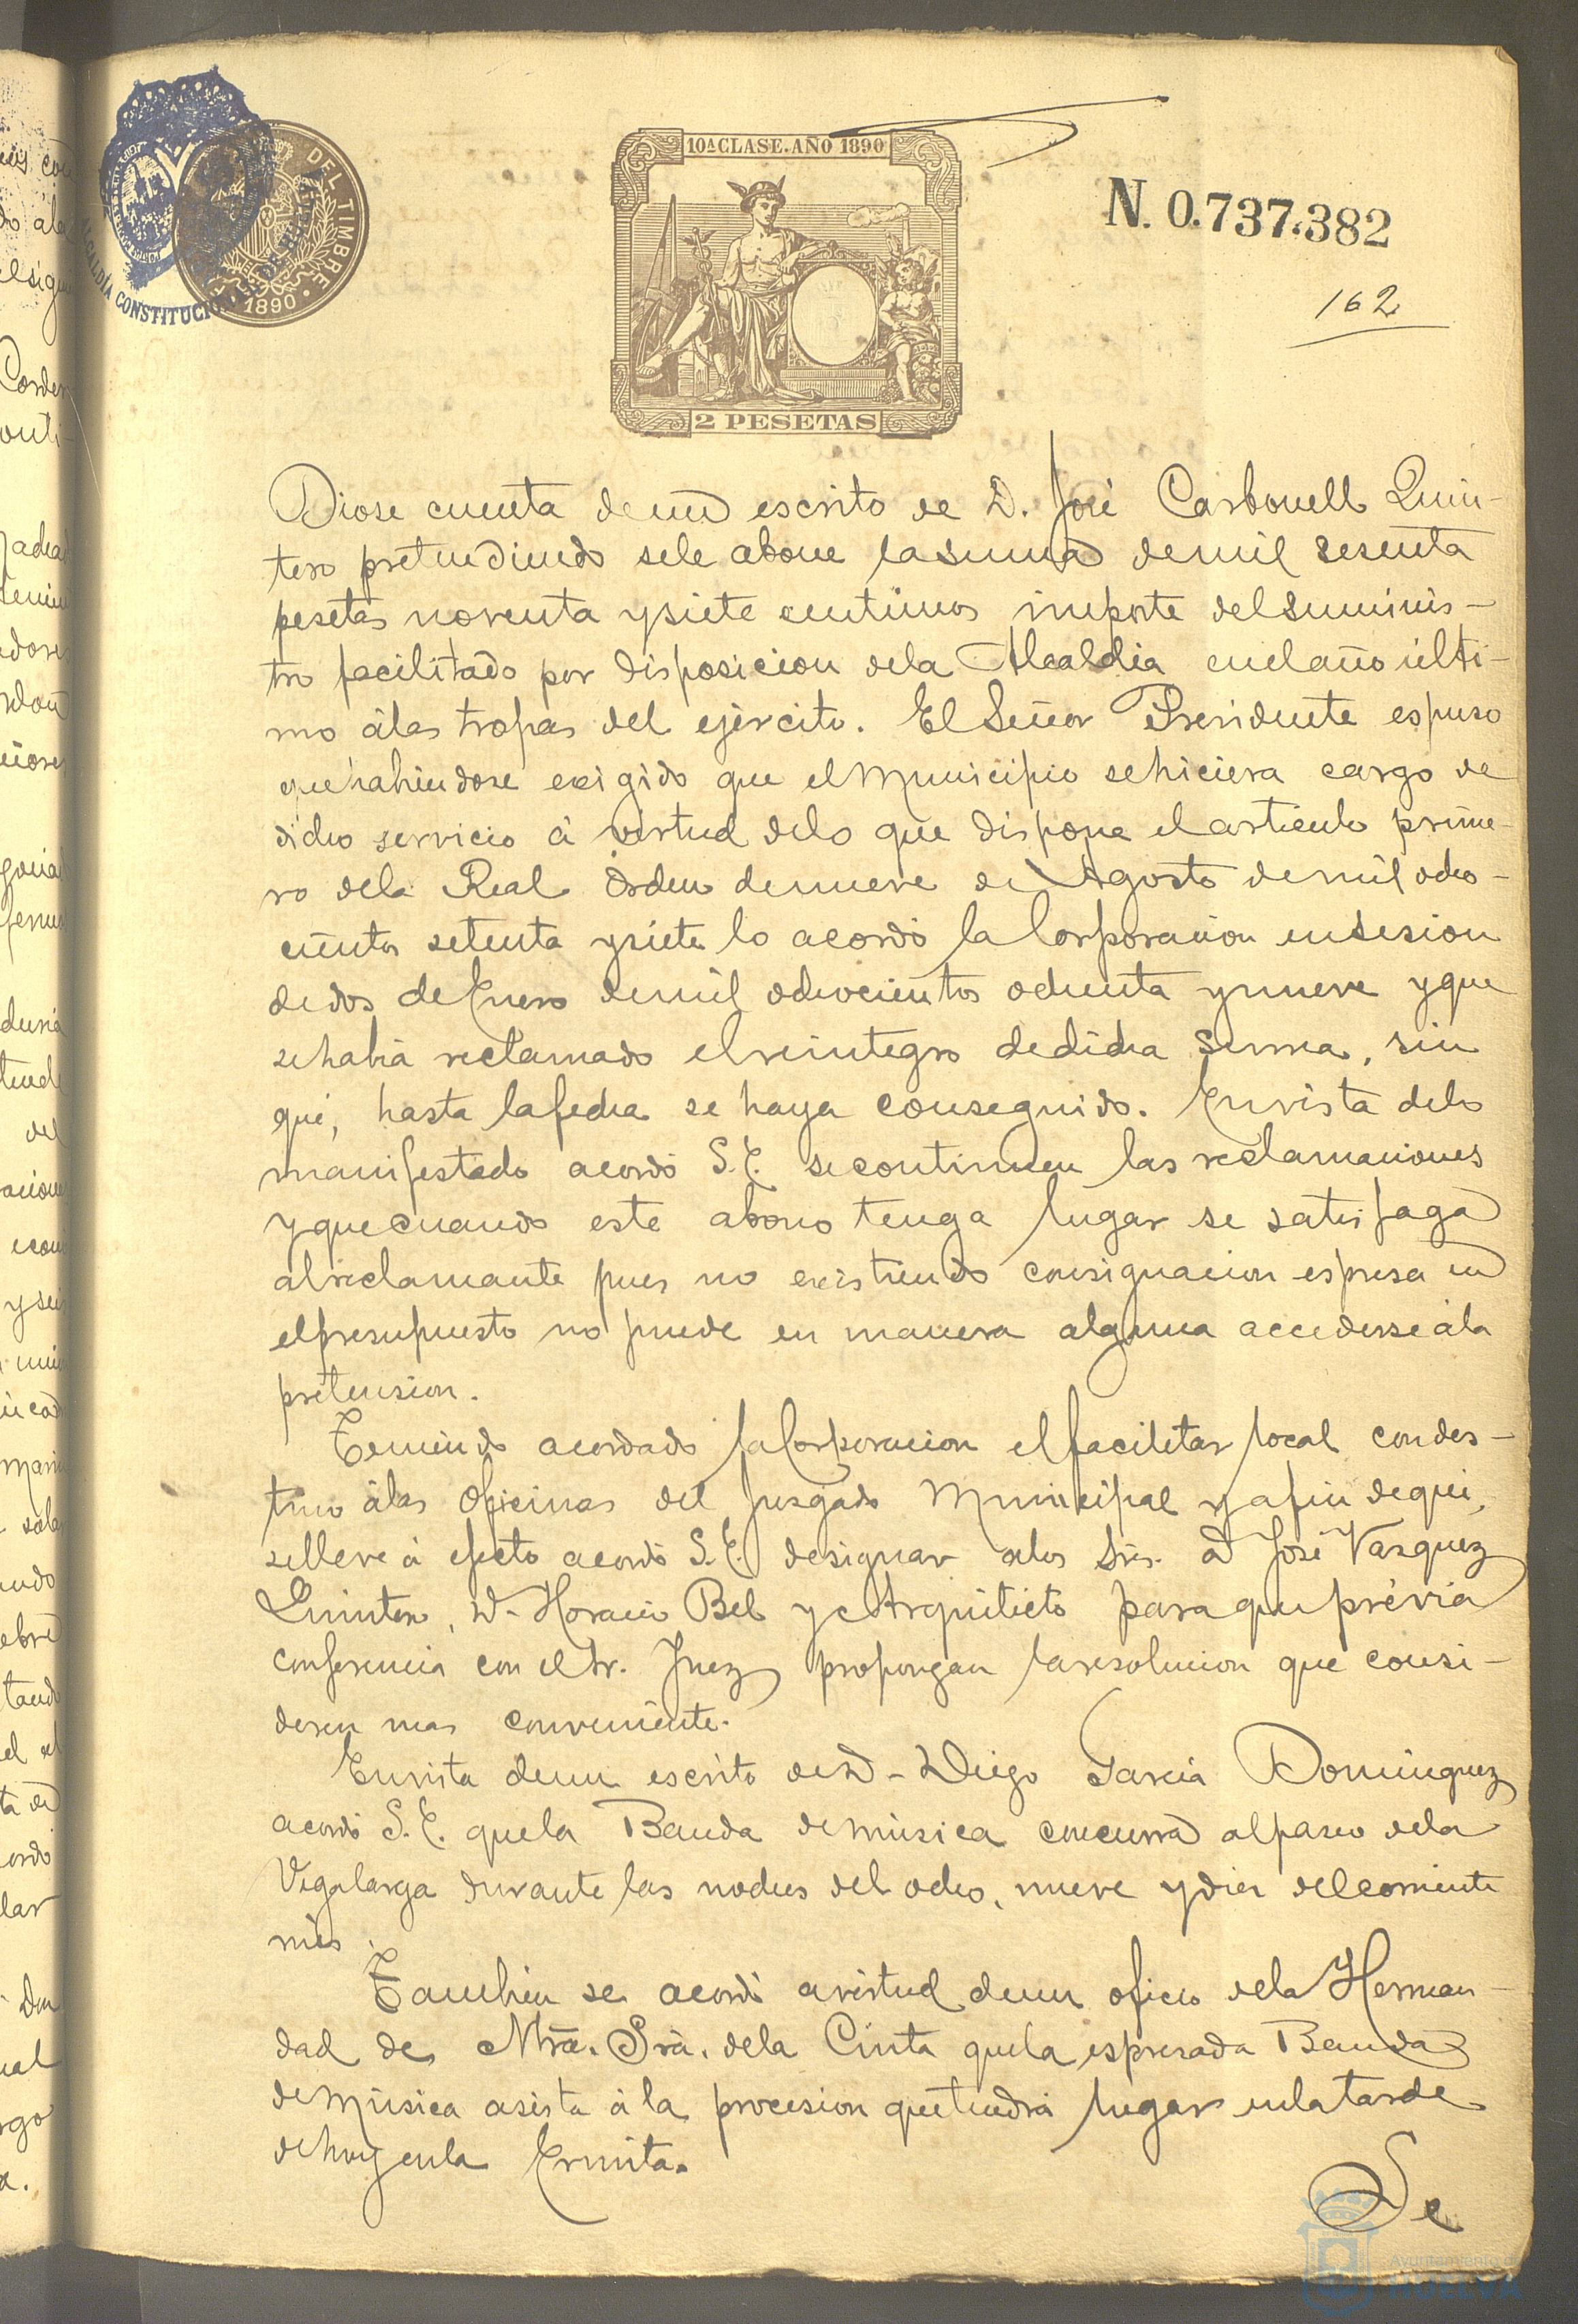 10ª CLASE. AÑO 1890
DEL TIMBRE
1890
ALCALDÍA CONSTITUCIONAL DE HUELVA
N. 0.737.382
162
2 PESETAS
Diose cuenta de un escrito de D. José Carbonell Quin-
tero pretendiendo se le abone la suma de mil sesenta
pesetas noventa y siete centimos importe del suminis-
tro facilitado por disposicion de la Alcaldia en el año últi-
mo á las tropas del ejército. El Señor Presidente espuso
que habiendose exigido que el Municipio se hiciera cargo de
dicho servicio á virtud de lo que dispone el articulo prime-
ro de la Real Orden de nueve de Agosto de mil ocho-
cientos setenta y siete lo acordó la Corporacion en sesion
de dos de Enero de mil ochocientos ochenta y nueve y que
se habia reclamado el reintegro de dicha suma, sin
que, hasta la fecha se haya conseguido. En vista de lo
manifestado acordó S.E. se continuen las reclamaciones
y que cuando este abono tenga lugar se satisfaga
al reclamante pues no existiendo consignacion espresa en
el presupuesto no puede en manera alguna accederse á la
pretension.
Teniendo acordado la Corporacion el facilitar local con des-
tino á las Oficinas del Juzgado Municipal y a fin de que
se lleve á efecto acordó S.E. designar a los Sres. D. José Vazquez
Quintero, D. Horacio Bel y Arquitecto para que prévia
conferencia con el Sr. Juez propongan la resolucion que consi-
deren mas conveniente.
En vista de un escrito de D. Diego Garcia Dominguez
acordó S.E. que la Banda de música concurra al paseo de la
Vegalarga durante las noches del ocho, nueve y diez del corriente
mes.
Tambien se acordó a virtud de un oficio de la Herman-
dad de Ntra. Sra. de la Cinta que la espresada Banda
de Música asista á la procesion que tendrá lugar en la tarde
de hoy en la Ermita.
Se
Ayuntamiento de
HUELVA